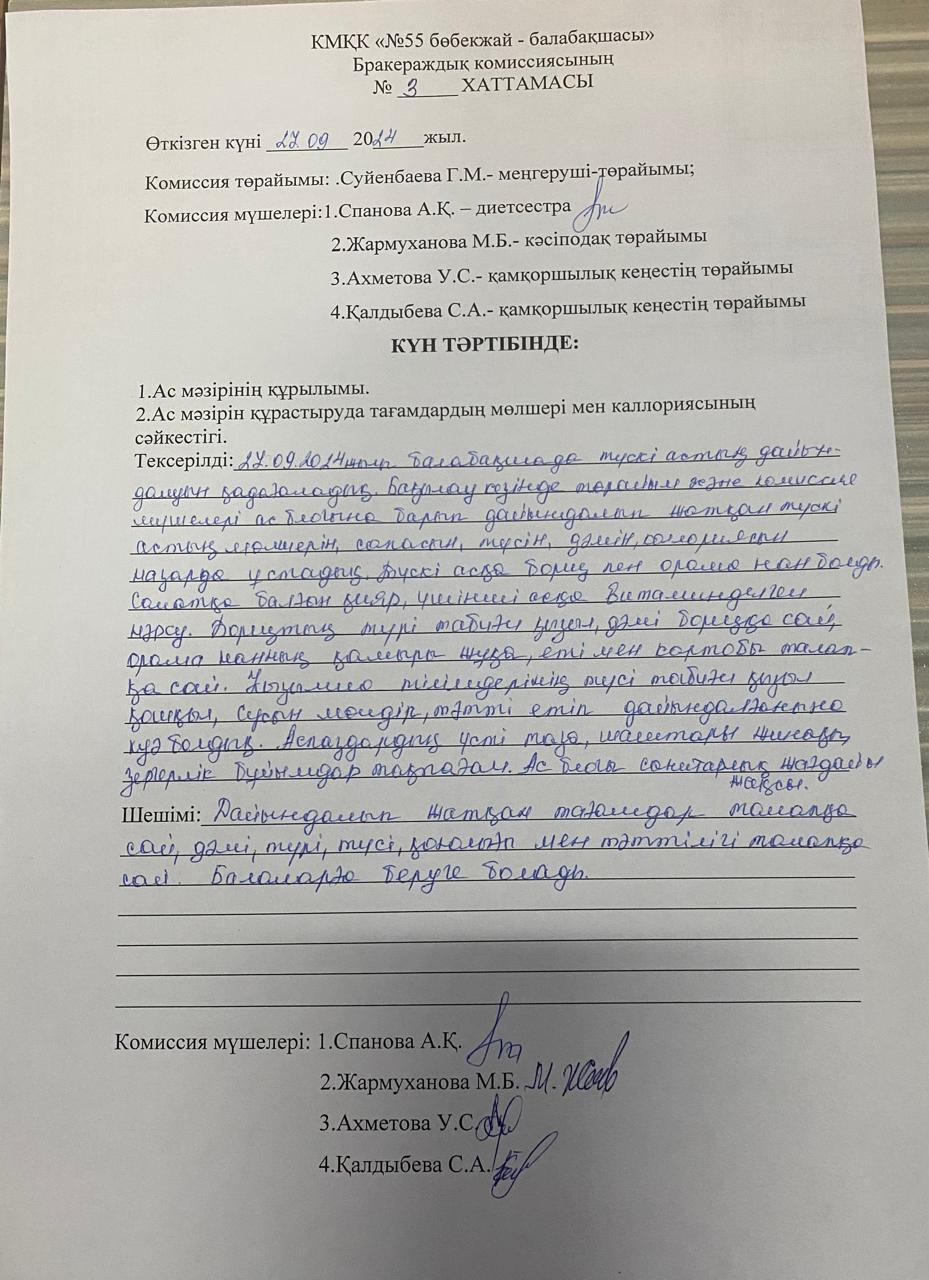 КМҚК «№55 бөбекжай - балабақшасы»
Бракераждық комиссиясының
№ 3 ХАТТАМАСЫ
Өткізген күні 27.09 2024 жыл.
Комиссия төрайымы: .Суйенбаева Г.М.- меңгеруші-төрайымы;
Комиссия мүшелері:1.Спанова А.Қ. – диетсестра
2.Жармуханова М.Б.- кәсіподақ төрайымы
3.Ахметова У.С.- қамқоршылық кеңестің төрайымы
4.Қалдыбева С.А.- қамқоршылық кеңестің төрайымы
КҮН ТӘРТІБІНДЕ:
1.Ас мәзірінің құрылымы.
2.Ас мәзірін құрастыруда тағамдардың мөлшері мен каллориясының
сәйкестігі.
Тексерілді: 27.09.2024жыл балабақшада түскі астың дайын-
далуын қадағаладық. Бақылау кезінде төрайым және комиссия
мүшелері ас блогына барып дайындалып жатқан түскі
астың мөлшерін, сапасын, түсін, дәмін, калориясын
назарда ұстадық. Түскі асқа борщ пен орама нан болды.
Салатқа балғын қияр, үшінші асқа витаминделген
нәрсу. Борщтың түрі табиғи қызыл, дәмі борщқа сай,
орама нанның қамыры жұқа, еті мен картобы талап-
қа сай. Қызылша тілімдерінің түсі табиғи қызыл
қошқыл, сусын мөлдір, тәтті етіп дайындалғанына
куә болдық. Аспаздардың үсті таза, шаштары жинақы,
зергерлік бұйымдар тақпаған. Ас блогы санитарлық жағдайы
жақсы.
Шешімі: Дайындалып жатқан тағамдар талапқа
сай, дәмі, түрі, түсі, мен тәттілігі талапқа
сай. Балаларға беруге болады.
Комиссия мүшелері: 1.Спанова А.Қ.
2.Жармуханова М.Б. М.
3.Ахметова У.С.
4.Қалдыбева С.А.